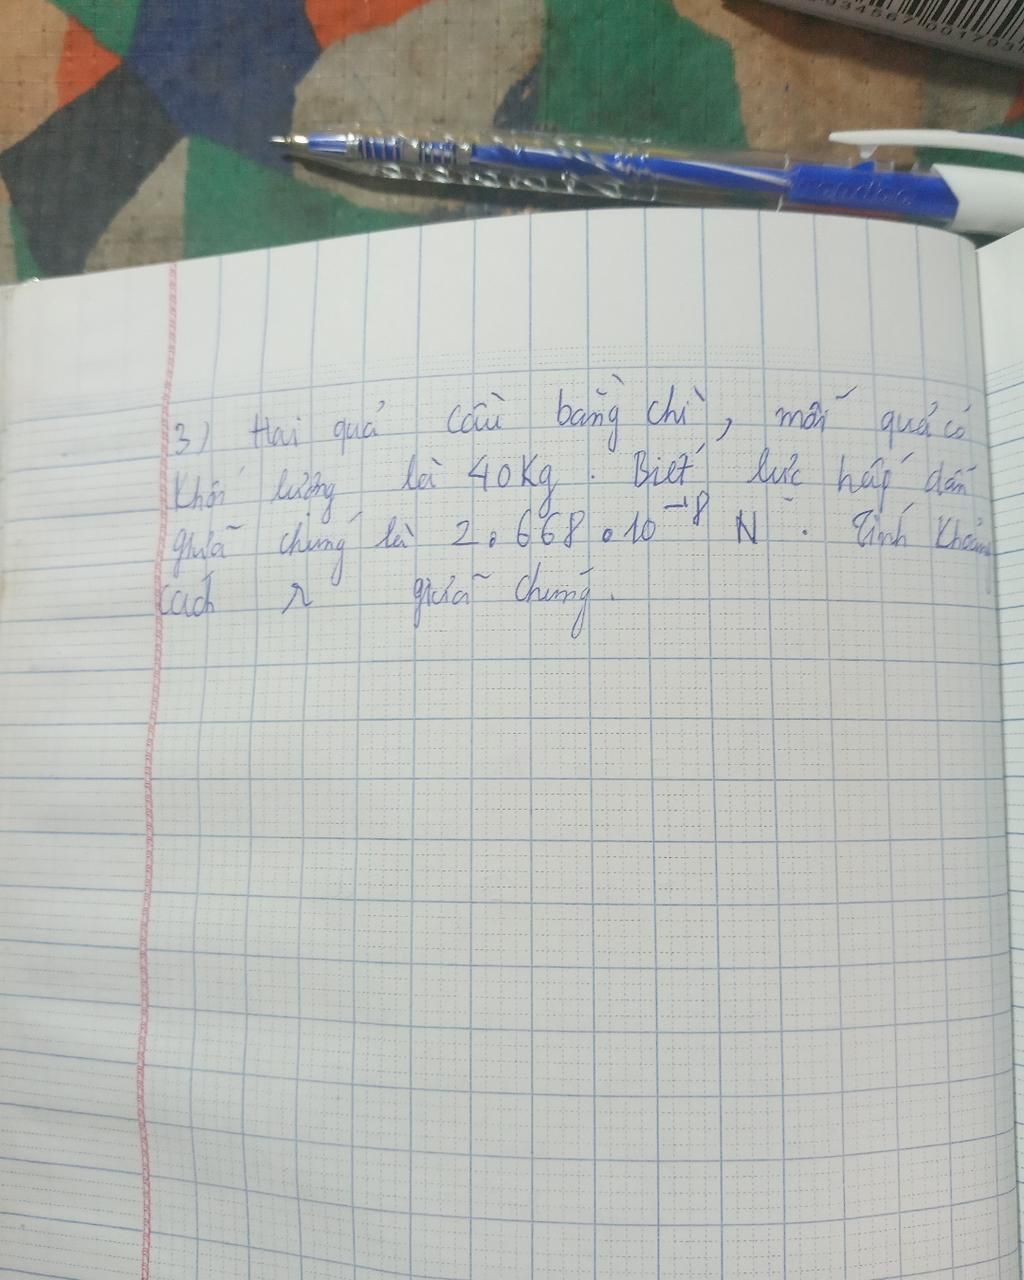 934567 001793
3) Hai quả cầu bằng chì, mỗi quả có
Khối lượng là 40Kg. Biết lực hấp dẫn
giữa chúng là 2.668.10⁻⁸ N. Tính Khoảng
cách r giữa chúng.